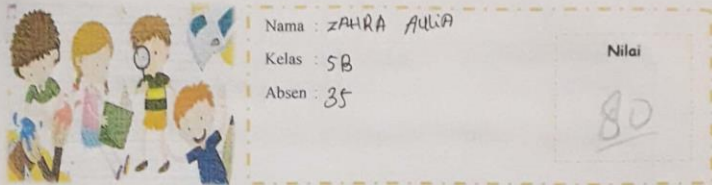 Nama : ZAHRA AULIA
Kelas : 5B
Absen : 35
Nilai
80